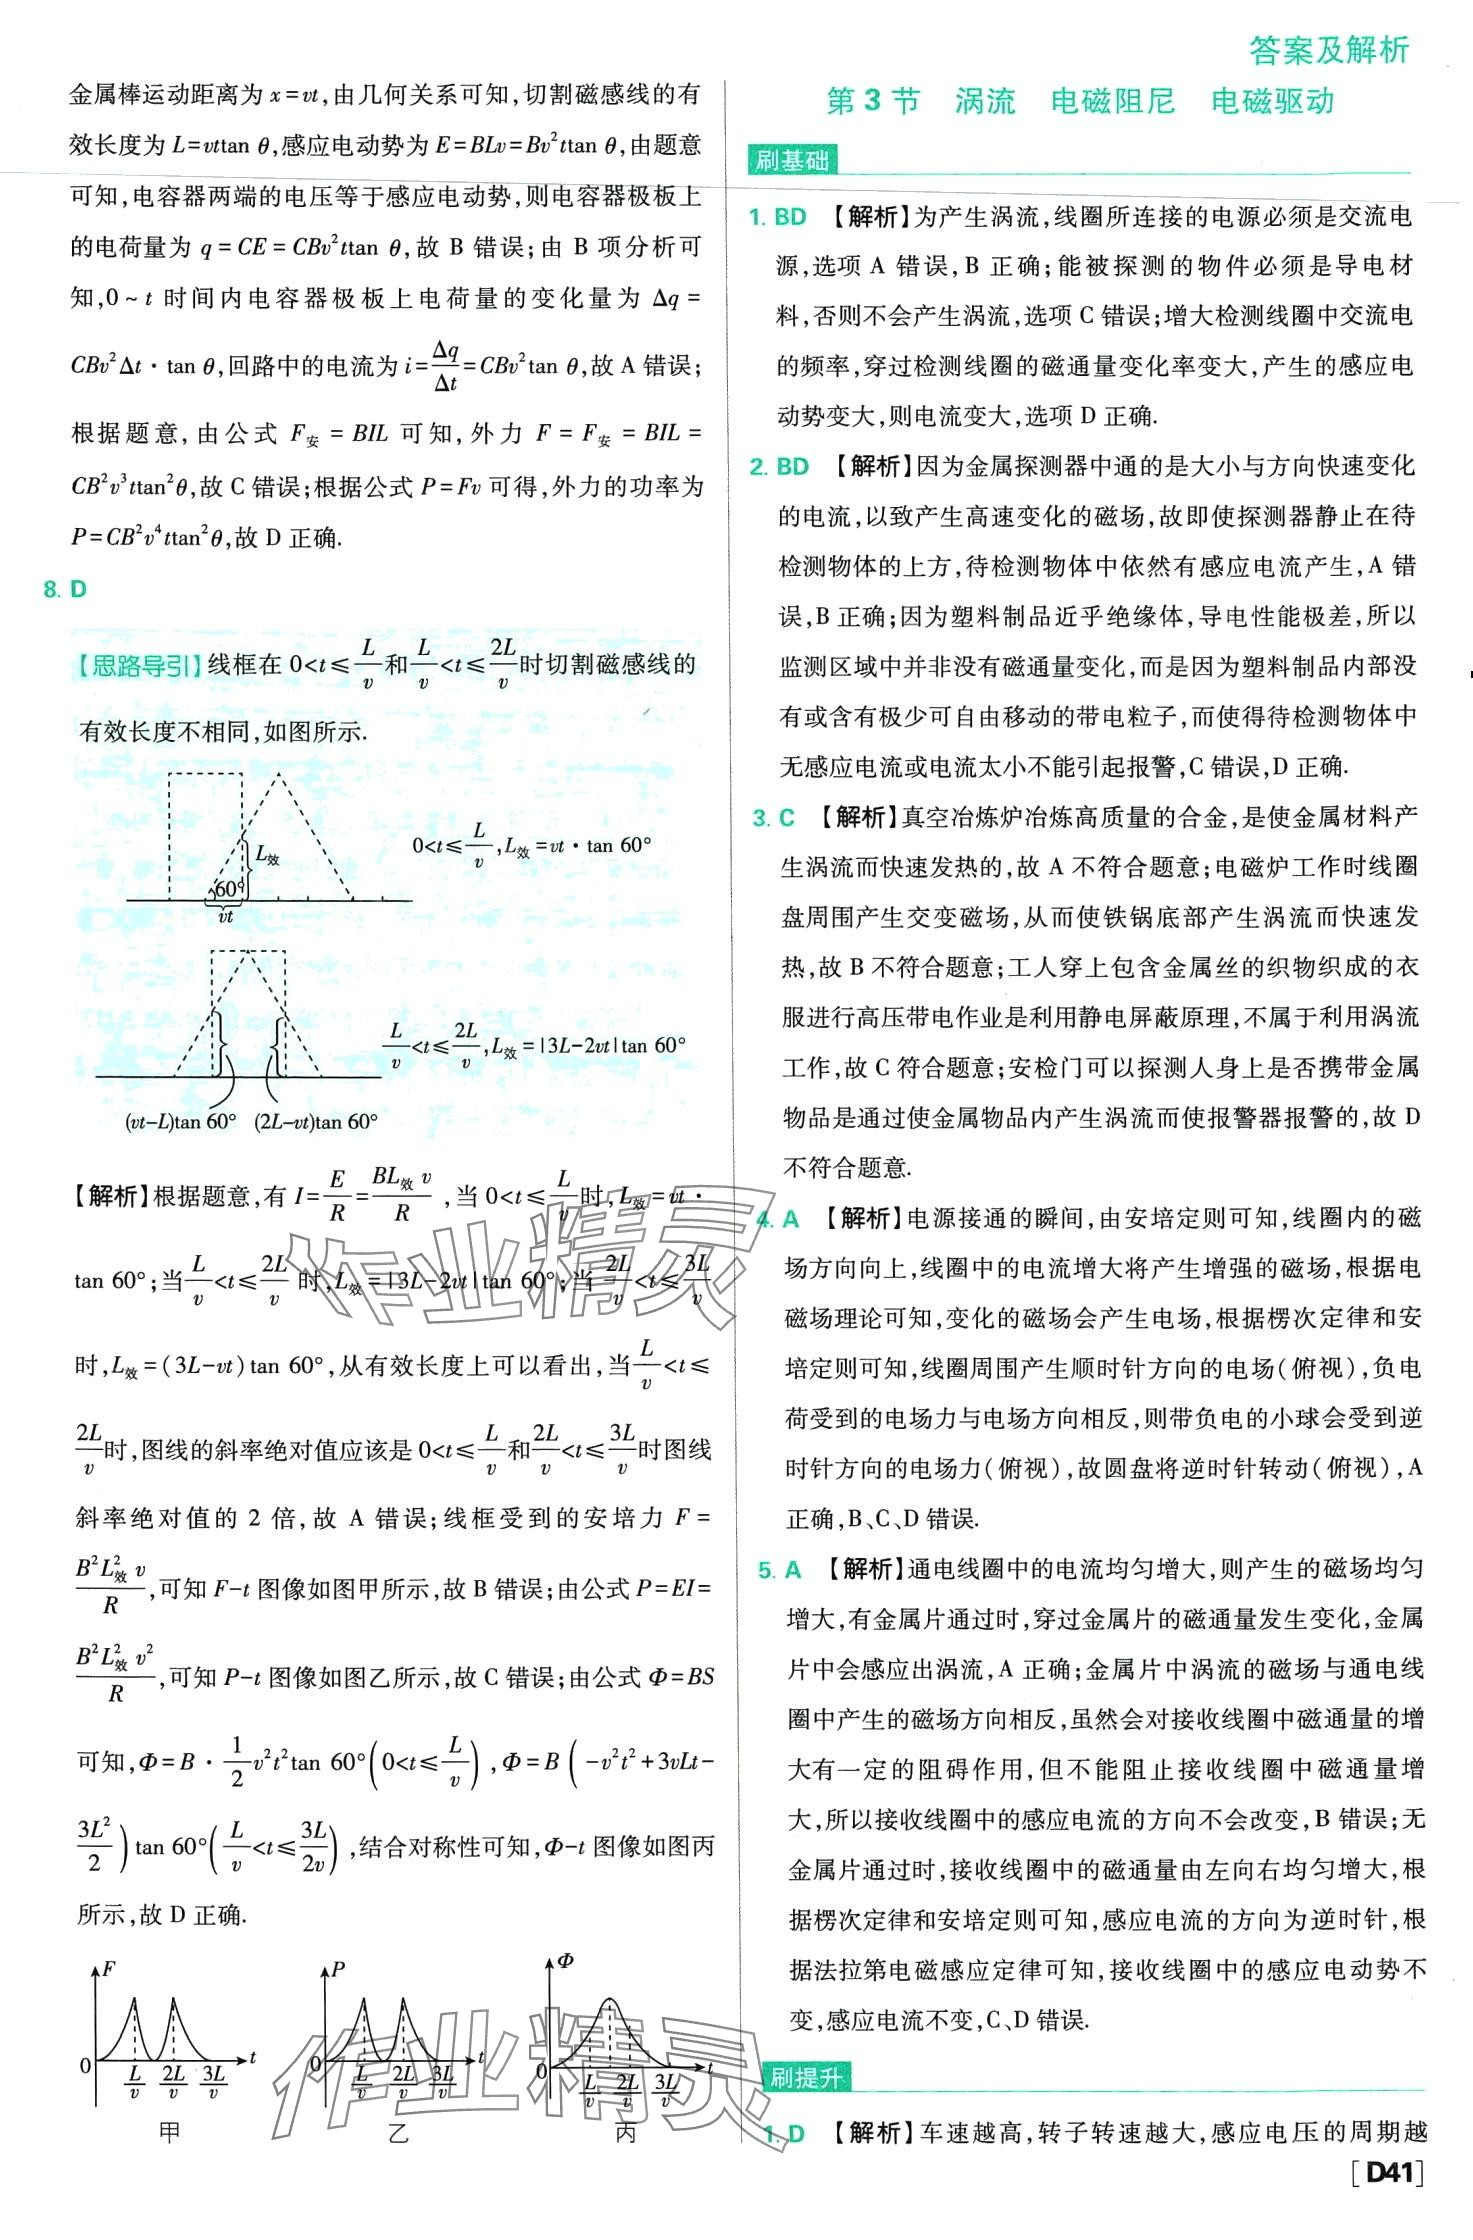 答案及解析
金属棒运动距离为 x=vt,由几何关系可知,切割磁感线的有
效长度为 L=vttan θ,感应电动势为 E=BLv=Bv²ttan θ,由题意
可知,电容器两端的电压等于感应电动势,则电容器极板上
的电荷量为 q=CE=CBv²ttan θ,故 B 错误;由 B 项分析可
知,0~t 时间内电容器极板上电荷量的变化量为 Δq=
CBv²Δt·tan θ,回路中的电流为 i=Δq/Δt=CBv²tan θ,故 A 错误;
根据题意,由公式 F安=BIL 可知,外力 F=F安=BIL=
CB²v³ttan²θ,故 C 错误;根据公式 P=Fv 可得,外力的功率为
P=CB²v⁴ttan²θ,故 D 正确.
8. D
【思路导引】线框在 0<t≤L/v和L/v<t≤2L/v时切割磁感线的
有效长度不相同,如图所示.
L效
60°
vt
0<t≤L/v,L效=vt·tan 60°
L/v<t≤2L/v,L效=|3L-2vt|tan 60°
(vt-L)tan 60° (2L-vt)tan 60°
【解析】根据题意,有 I=E/R=BL效v/R,当 0<t≤L/v时,L效=vt·
tan 60°;当L/v<t≤2L/v时,L效=|3L-2vt|tan 60°;当2L/v<t≤3L/v
时,L效=(3L-vt)tan 60°,从有效长度上可以看出,当L/v<t≤
2L/v时,图线的斜率绝对值应该是 0<t≤L/v和2L/v<t≤3L/v时图线
斜率绝对值的 2 倍,故 A 错误;线框受到的安培力 F=
B²L²效v/R,可知 F-t 图像如图甲所示,故 B 错误;由公式 P=EI=
B²L²效v²/R,可知 P-t 图像如图乙所示,故 C 错误;由公式 Φ=BS
可知,Φ=B·1/2v²t²tan 60°(0<t≤L/v),Φ=B(-v²t²+3vLt-
3L²/2)tan 60°(L/v<t≤3L/2v),结合对称性可知,Φ-t 图像如图丙
所示,故 D 正确.
F 0 L/v 2L/v 3L/v t
甲
P 0 L/v 2L/v 3L/v t
乙
Φ 0 L/v 2L/v 3L/v t
丙
第 3 节 涡流 电磁阻尼 电磁驱动
刷基础
1. BD 【解析】为产生涡流,线圈所连接的电源必须是交流电
源,选项 A 错误,B 正确;能被探测的物件必须是导电材
料,否则不会产生涡流,选项 C 错误;增大检测线圈中交流电
的频率,穿过检测线圈的磁通量变化率变大,产生的感应电
动势变大,则电流变大,选项 D 正确.
2. BD 【解析】因为金属探测器中通的是大小与方向快速变化
的电流,以致产生高速变化的磁场,故即使探测器静止在待
检测物体的上方,待检测物体中依然有感应电流产生,A 错
误,B 正确;因为塑料制品近乎绝缘体,导电性能极差,所以
监测区域中并非没有磁通量变化,而是因为塑料制品内部没
有或含有极少可自由移动的带电粒子,而使得待检测物体中
无感应电流或电流太小不能引起报警,C 错误,D 正确.
3. C 【解析】真空冶炼炉冶炼高质量的合金,是使金属材料产
生涡流而快速发热的,故 A 不符合题意;电磁炉工作时线圈
盘周围产生交变磁场,从而使铁锅底部产生涡流而快速发
热,故 B 不符合题意;工人穿上包含金属丝的织物织成的衣
服进行高压带电作业是利用静电屏蔽原理,不属于利用涡流
工作,故 C 符合题意;安检门可以探测人身上是否携带金属
物品是通过使金属物品内产生涡流而使报警器报警的,故 D
不符合题意.
4. A 【解析】电源接通的瞬间,由安培定则可知,线圈内的磁
场方向向上,线圈中的电流增大将产生增强的磁场,根据电
磁场理论可知,变化的磁场会产生电场,根据楞次定律和安
培定则可知,线圈周围产生顺时针方向的电场(俯视),负电
荷受到的电场力与电场方向相反,则带负电的小球会受到逆
时针方向的电场力(俯视),故圆盘将逆时针转动(俯视),A
正确,B、C、D 错误.
5. A 【解析】通电线圈中的电流均匀增大,则产生的磁场均匀
增大,有金属片通过时,穿过金属片的磁通量发生变化,金属
片中会感应出涡流,A 正确;金属片中涡流的磁场与通电线
圈中产生的磁场方向相反,虽然会对接收线圈中磁通量的增
大有一定的阻碍作用,但不能阻止接收线圈中磁通量增
大,所以接收线圈中的感应电流的方向不会改变,B 错误;无
金属片通过时,接收线圈中的磁通量由左向右均匀增大,根
据楞次定律和安培定则可知,感应电流的方向为逆时针,根
据法拉第电磁感应定律可知,接收线圈中的感应电动势不
变,感应电流不变,C、D 错误.
刷提升
1. D 【解析】车速越高,转子转速越大,感应电压的周期越
[D41]
作业精灵
作业精灵